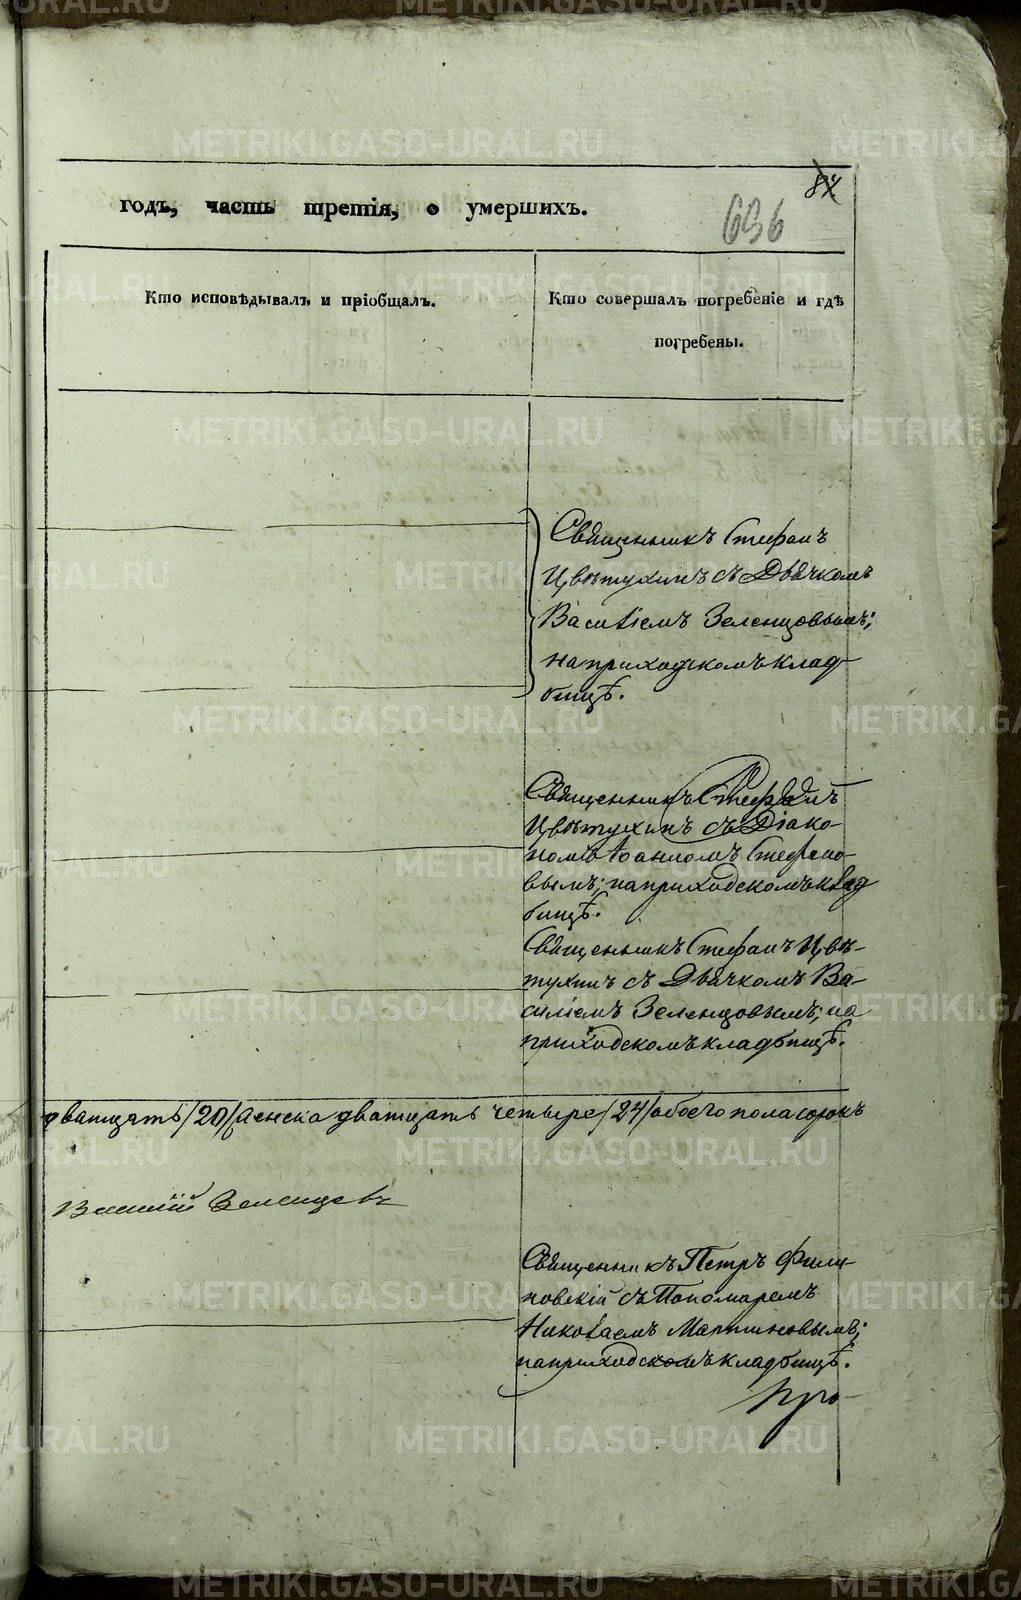 87
годъ, часть третія, о умершихъ.
636
Кто исповѣдывалъ и пріобщалъ.
Кто совершалъ погребеніе и гдѣ
погребены.
Священникъ Стефанъ
Цвѣтухинъ съ Дьячкомъ
Василіемъ Зеленцовымъ;
на приходскомъ клад-
бищѣ.
Священникъ Стефанъ
Цвѣтухинъ съ Діако-
номъ Іоанномъ Стефано-
вымъ; на приходскомъ клад
бищѣ.
Священникъ Стефанъ Цвѣ-
тухинъ съ Дьячкомъ Ва-
силіемъ Зеленцовымъ; на
приходскомъ кладбищѣ.
дватцать /20/ женска дватцать четыре /24/ обоего пола сорокъ
Василій Зеленцовъ
Священникъ Петръ Фили-
повскій съ Пономаремъ
Николаемъ Мартиновымъ;
на приходскомъ кладбищѣ.
METRIKI.GASO-URAL.RU